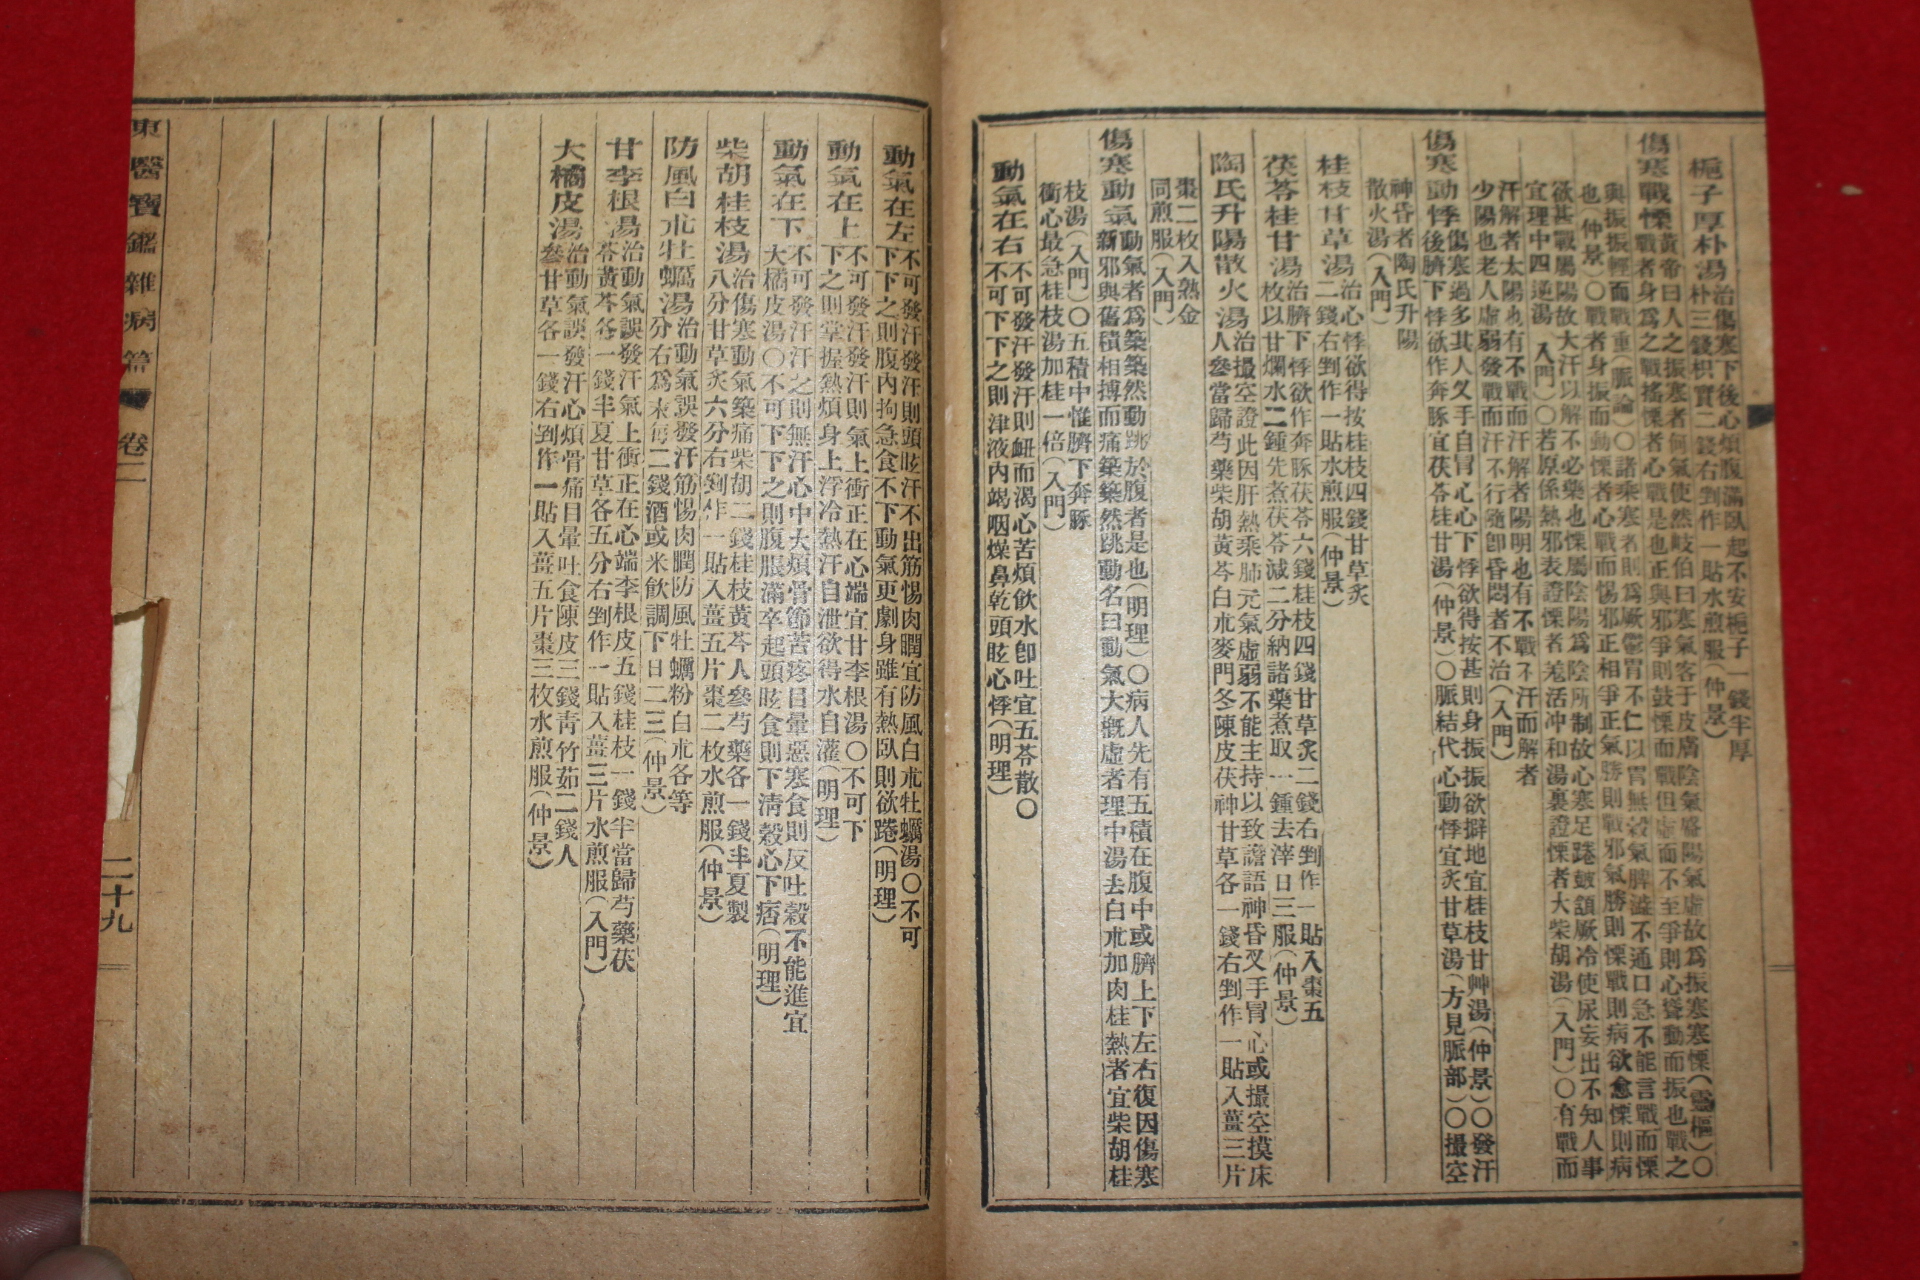 梔子厚朴湯治傷寒下後心煩腹滿臥起不安梔子一錢半厚
朴三錢枳實二錢右剉作一貼水煎服(仲景)
傷寒戰慄黃帝曰人之振寒者何氣使然岐伯曰寒氣客于皮膚陰氣盛陽氣虛故爲振寒寒慄(靈樞)〇
戰者身爲之戰搖慄者心戰是也正與邪爭則鼓慄而戰但虛而不至爭則心聳動而振也戰之
與振振輕而戰重(脈論)〇諸乘寒者則爲厥鬱冒不仁以胃無穀氣脾澁不通口急不能言戰而慄
也(仲景)〇戰者身振而動慄者心戰而惕邪正相爭正氣勝則戰邪氣勝則慄戰則病欲愈慄則病
欲甚戰屬陽故大汗以解不必藥也慄屬陰陽爲陰所制故心寒足踡皷頷厥冷使尿妄出不知人事
宜理中四逆湯(入門)〇若原係熱邪表證慄者羌活冲和湯裏證慄者大柴胡湯(入門)〇有戰而
汗解者太陽也有不戰而汗解者陽明也有不戰不汗而解者
少陽也老人虛弱發戰而汗不行隨卽昏悶者不治(入門)
傷寒動悸傷寒過多其人叉手自冒心心下悸欲得按甚則身振振欲擗地宜桂枝甘艸湯(仲景)〇發汗
後臍下悸欲作奔豚宜茯苓桂甘湯(仲景)〇脈結代心動悸宜炙甘草湯(方見脈部)〇撮空
神昏者陶氏升陽
散火湯(入門)
桂枝甘草湯治心悸欲得按桂枝四錢甘草炙
二錢右剉作一貼水煎服(仲景)
茯苓桂甘湯治臍下悸欲作奔豚茯苓六錢桂枝四錢甘草炙二錢右剉作一貼入棗五
枚以甘爛水二鍾先煮茯苓減二分納諸藥煮取一鍾去滓日三服(仲景)
陶氏升陽散火湯治撮空證此因肝熱乘肺元氣虛弱不能主持以致譫語神昏叉手冒心或撮空摸床
人參當歸芍藥柴胡黃芩白朮麥門冬陳皮茯神甘草各一錢右剉作一貼入薑三片
棗二枚入熟金
同煎服(入門)
傷寒動氣動氣者爲築築然動跳於腹者是也(明理)〇病人先有五積在腹中或臍上下左右復因傷寒
新邪與舊積相搏而痛築築然跳動名曰動氣大槪虛者理中湯去白朮加肉桂熱者宜柴胡桂
枝湯(入門)〇五積中惟臍下奔豚
衝心最急桂枝湯加桂一倍(入門)
動氣在右不可發汗發汗則衄而渴心苦煩飮水卽吐宜五苓散〇
不可下下之則津液內竭咽燥鼻乾頭眩心悸(明理)
動氣在左不可發汗發汗則頭眩汗不出筋惕肉瞤宜防風白朮牡蠣湯〇不可
下下之則腹內拘急食不下動氣更劇身雖有熱臥則欲踡(明理)
動氣在上不可發汗發汗則氣上衝正在心端宜甘李根湯〇不可下
下之則掌握熱煩身上浮冷熱汗自泄欲得水自灌(明理)
動氣在下不可發汗汗之則無汗心中大煩骨節苦疼目暈惡寒食則反吐穀不能進宜
大橘皮湯〇不可下下之則腹脹滿卒起頭眩食則下淸穀心下痞(明理)
柴胡桂枝湯治傷寒動氣築痛柴胡二錢桂枝黃芩人參芍藥各一錢半夏製
八分甘草炙六分右剉作一貼入薑五片棗二枚水煎服(仲景)
防風白朮牡蠣湯治動氣誤發汗筋惕肉瞤防風牡蠣粉白朮各等
分右爲末每二錢酒或米飮調下日二三(仲景)
甘李根湯治動氣誤發汗氣上衝正在心端李根皮五錢桂枝一錢半當歸芍藥茯
苓黃芩各一錢半夏甘草各五分右剉作一貼入薑三片水煎服(入門)
大橘皮湯治動氣誤發汗心煩骨痛目暈吐食陳皮三錢靑竹茹二錢人
參甘草各一錢右剉作一貼入薑五片棗三枚水煎服(仲景)
東醫寶鑑雜病篇 卷二 二十九